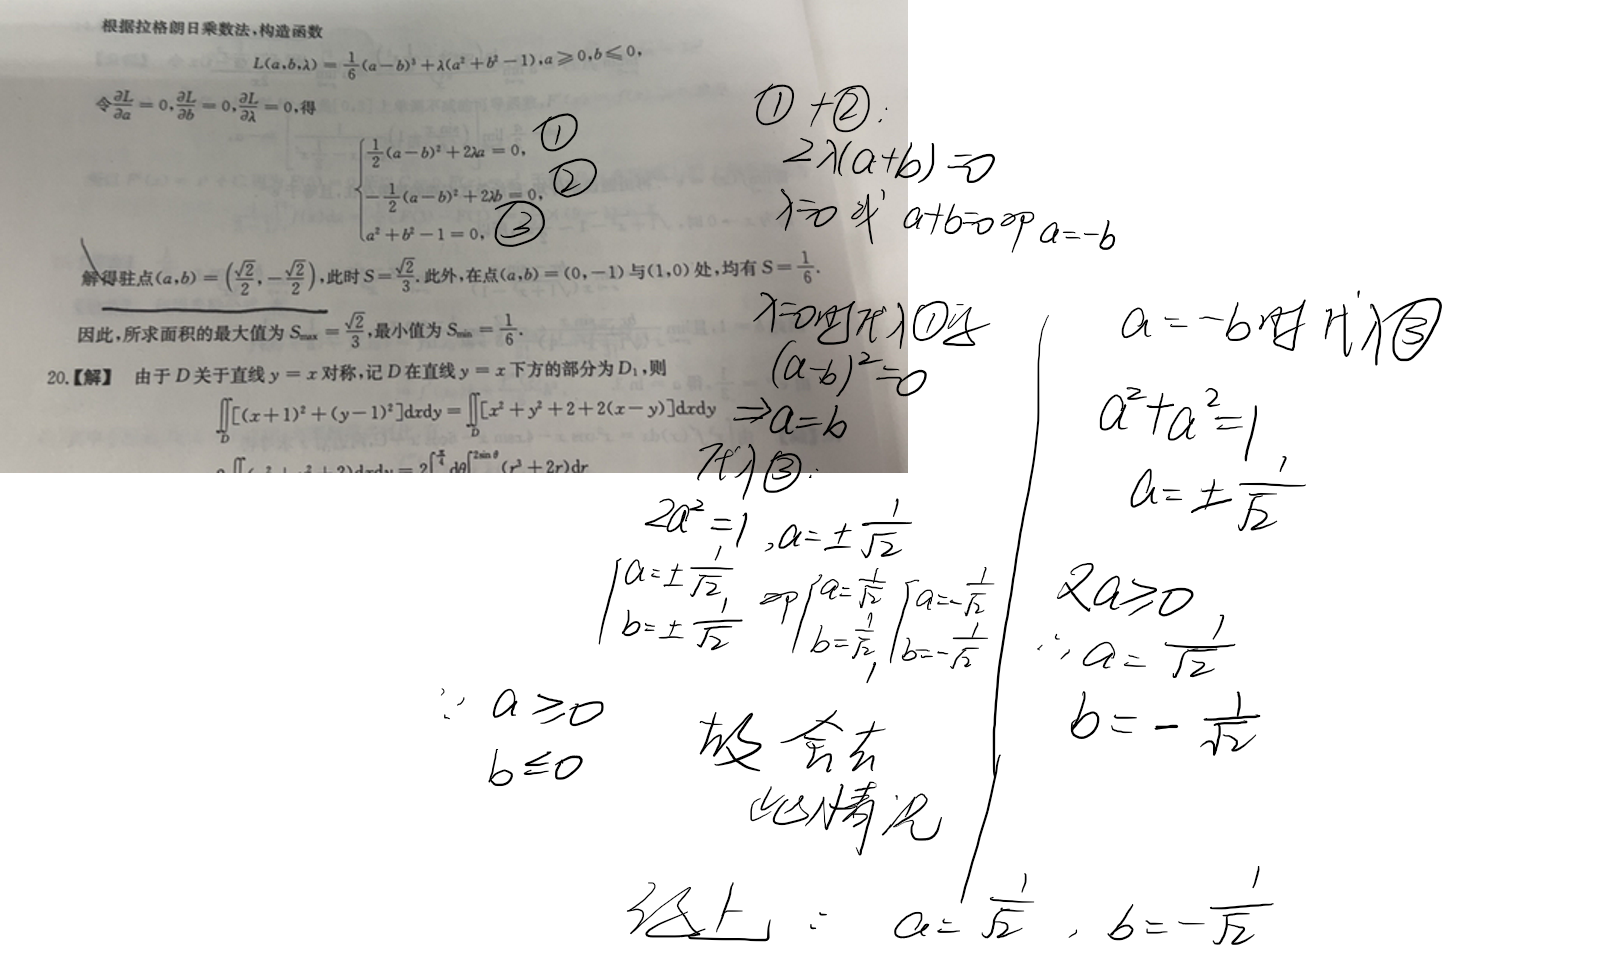 根据拉格朗日乘数法,构造函数
L(a,b,λ)=1/6(a-b)³+λ(a²+b²-1),a≥0,b≤0,
令∂L/∂a=0,∂L/∂b=0,∂L/∂λ=0,得
1/2(a-b)²+2λa=0, ①
-1/2(a-b)²+2λb=0, ②
a²+b²-1=0, ③
解得驻点(a,b)=(√2/2,-√2/2),此时S=√2/3.此外,在点(a,b)=(0,-1)与(1,0)处,均有S=1/6.
因此,所求面积的最大值为Smax=√2/3,最小值为Smin=1/6.
20.【解】 由于D关于直线y=x对称,记D在直线y=x下方的部分为D₁,则
∬D[(x+1)²+(y-1)²]dxdy=∬D[x²+y²+2+2(x-y)]dxdy
①+②:
2λ(a+b)=0
λ=0或 a+b=0即a=-b
λ=0时代入①得
(a-b)²=0
⇒a=b
代入③:
2a²=1,a=±1/√2
{a=±1/√2 b=±1/√2 即{a=1/√2 b=1/√2, {a=-1/√2 b=-1/√2
∵ a≥0
b≤0
故舍去
此情况
a=-b时代入③
a²+a²=1
a=±1/√2
又a≥0
∴a=1/√2
b=-1/√2
综上: a=1/√2, b=-1/√2